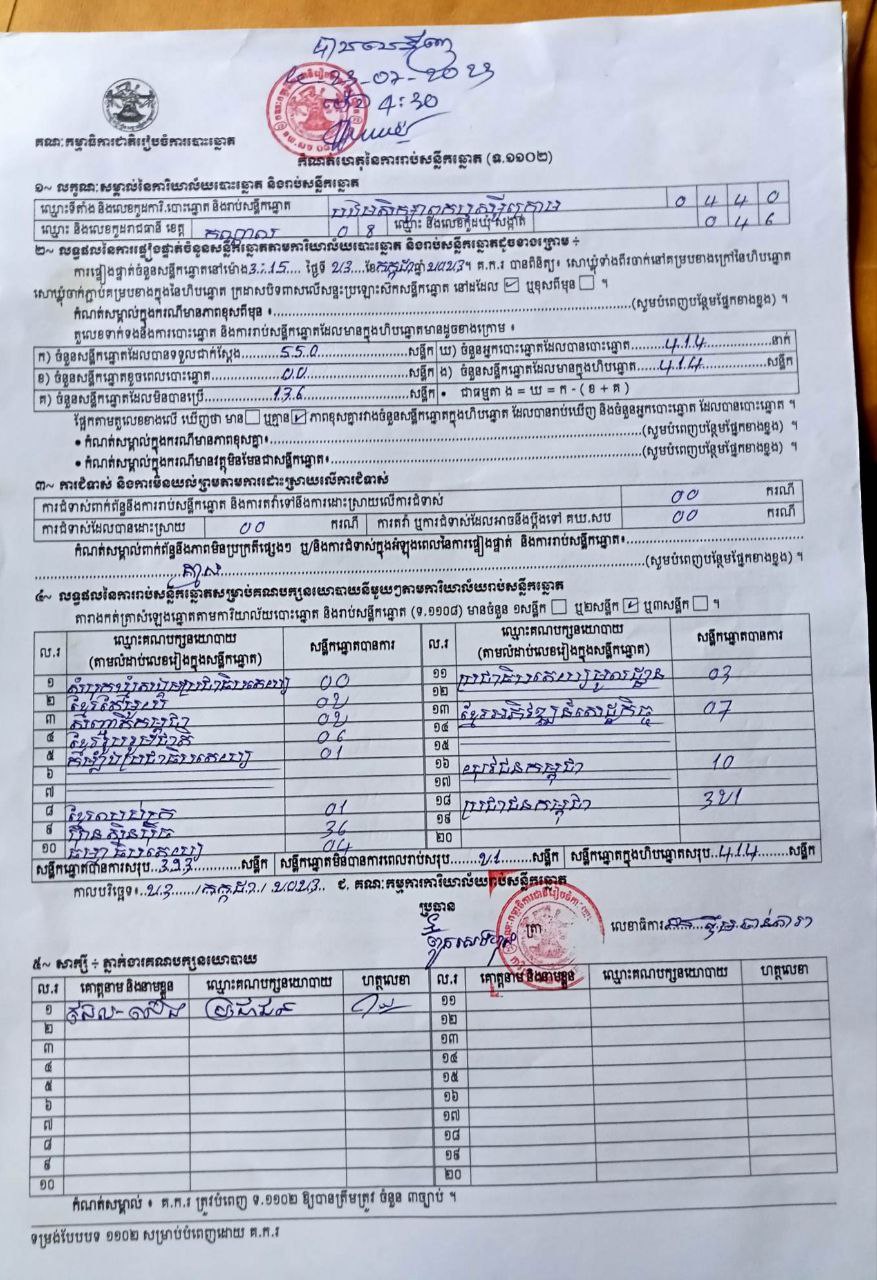 បានឃើញ
23-07-2023
ម៉ោង 4:30
គណៈកម្មាធិការជាតិរៀបចំការបោះឆ្នោត
កំណត់ហេតុនៃការរាប់សន្លឹកឆ្នោត (ទ.១១០២)
១~ លក្ខណៈសម្គាល់នៃការិយាល័យបោះឆ្នោត និងរាប់សន្លឹកឆ្នោត
ឈ្មោះទីតាំង និងលេខកូដការិ.បោះឆ្នោត និងរាប់សន្លឹកឆ្នោត 0 4 4 0
ឈ្មោះ និងលេខកូដរាជធានី ខេត្ត កណ្តាល 0 8 ឈ្មោះ និងលេខកូដឃុំ សង្កាត់ 0 4 6
២~ លទ្ធផលនៃការផ្ទៀងផ្ទាត់ចំនួនសន្លឹកឆ្នោតតាមការិយាល័យបោះឆ្នោត និងរាប់សន្លឹកឆ្នោតដូចខាងក្រោម ÷
ការផ្ទៀងផ្ទាត់ចំនួនសន្លឹកឆ្នោតនៅម៉ោង 3:15 ថ្ងៃទី ២3 ខែ កក្កដា ឆ្នាំ ២០២3។ គ.ក.រ បានពិនិត្យ៖ សោឃ្លុំទាំងពីរចាក់នៅគម្របខាងក្រៅនៃហិបឆ្នោត
សោឃ្លុំចាក់ភ្ជាប់គម្របខាងក្នុងនៃហិបឆ្នោត ក្រដាសបិទពាសលើសន្ទះប្រឡោះស៊កសន្លឹកឆ្នោត នៅដដែល ☑ ឬខុសពីមុន ☐ ។
កំណត់សម្គាល់ក្នុងករណីមានភាពខុសពីមុន ៖ (សូមបំពេញបន្ថែមផ្នែកខាងខ្នង) ។
តួលេខទាក់ទងនឹងការបោះឆ្នោត និងការរាប់សន្លឹកឆ្នោតដែលមានក្នុងហិបឆ្នោតមានដូចខាងក្រោម ៖
ក) ចំនួនសន្លឹកឆ្នោតដែលបានទទួលជាក់ស្តែង 550 សន្លឹក ឃ) ចំនួនអ្នកបោះឆ្នោតដែលបានបោះឆ្នោត 414 នាក់
ខ) ចំនួនសន្លឹកឆ្នោតខូចពេលបោះឆ្នោត 00 សន្លឹក ង) ចំនួនសន្លឹកឆ្នោតដែលមានក្នុងហិបឆ្នោត 414 សន្លឹក
គ) ចំនួនសន្លឹកឆ្នោតដែលមិនបានប្រើ 136 សន្លឹក • ជាធម្មតា ង = ឃ = ក - ( ខ + គ )
ផ្អែកតាមតួលេខខាងលើ ឃើញថា មាន ☐ ឬគ្មាន ☑ ភាពខុសគ្នារវាងចំនួនសន្លឹកឆ្នោតក្នុងហិបឆ្នោត ដែលបានរាប់ឃើញ និងចំនួនអ្នកបោះឆ្នោត ដែលបានបោះឆ្នោត ។
• កំណត់សម្គាល់ក្នុងករណីមានភាពខុសគ្នា៖ (សូមបំពេញបន្ថែមផ្នែកខាងខ្នង) ។
• កំណត់សម្គាល់ក្នុងករណីមានវត្ថុមិនមែនជាសន្លឹកឆ្នោត៖ (សូមបំពេញបន្ថែមផ្នែកខាងខ្នង) ។
៣~ ការជំទាស់ និងការមិនយល់ព្រមតាមការដោះស្រាយលើការជំទាស់
ការជំទាស់ពាក់ព័ន្ធនឹងការរាប់សន្លឹកឆ្នោត និងការតវ៉ាទៅនឹងការដោះស្រាយលើការជំទាស់ 00 ករណី
ការជំទាស់ដែលបានដោះស្រាយ 00 ករណី ការតវ៉ា ឬការជំទាស់ដែលអាចនឹងប្តឹងទៅ គឃ.សប 00 ករណី
កំណត់សម្គាល់ពាក់ព័ន្ធនឹងភាពមិនប្រក្រតីផ្សេងៗ ឬ/និងការជំទាស់ក្នុងអំឡុងពេលនៃការផ្ទៀងផ្ទាត់ និងការរាប់សន្លឹកឆ្នោត៖
គ្មាន (សូមបំពេញបន្ថែមផ្នែកខាងខ្នង) ។
៤~ លទ្ធផលនៃការរាប់សន្លឹកឆ្នោតសម្រាប់គណបក្សនយោបាយនីមួយៗតាមការិយាល័យរាប់សន្លឹកឆ្នោត
តារាងកត់ត្រាសំឡេងឆ្នោតតាមការិយាល័យបោះឆ្នោត និងរាប់សន្លឹកឆ្នោត (ទ.១១០៨) មានចំនួន ១សន្លឹក ☐ ឬ២សន្លឹក ☑ ឬ៣សន្លឹក ☐ ។
ល.រ ឈ្មោះគណបក្សនយោបាយ (តាមលំដាប់លេខរៀងក្នុងសន្លឹកឆ្នោត) សន្លឹកឆ្នោតបានការ ល.រ ឈ្មោះគណបក្សនយោបាយ (តាមលំដាប់លេខរៀងក្នុងសន្លឹកឆ្នោត) សន្លឹកឆ្នោតបានការ
១ សំបុកឃ្មុំសង្គមប្រជាធិបតេយ្យ 00 ១១ ប្រជាធិបតេយ្យមូលដ្ឋាន 03
២ ខ្មែរតែមួយ 0២ ១២
៣ សញ្ជាតិកម្ពុជា 0២ ១៣ ខ្មែរអភិវឌ្ឍន៍សេដ្ឋកិច្ច 07
៤ ខ្មែររួបរួមជាតិ 06 ១៤
៥ កម្លាំងប្រជាធិបតេយ្យ 01 ១៥
៦ ១៦ យុវជនកម្ពុជា 10
៧ ១៧
៨ ខ្មែរឈប់ក្រ 01 ១៨ ប្រជាជនកម្ពុជា 3២1
៩ ហ៊្វុនស៊ិនប៉ិច 36 ១៩
១០ ធម្មាធិបតេយ្យ 04 ២០
សន្លឹកឆ្នោតបានការសរុប 393 សន្លឹក សន្លឹកឆ្នោតមិនបានការពេលរាប់សរុប ២1 សន្លឹក សន្លឹកឆ្នោតក្នុងហិបឆ្នោតសរុប 414 សន្លឹក
កាលបរិច្ឆេទ៖ ២3 / កក្កដា / ២០២3 ជ. គណៈកម្មការការិយាល័យរាប់សន្លឹកឆ្នោត
ប្រធាន
ត្រា
លេខាធិការ
៥~ សាក្សី ÷ ភ្នាក់ងារគណបក្សនយោបាយ
ល.រ គោត្តនាម និងនាមខ្លួន ឈ្មោះគណបក្សនយោបាយ ហត្ថលេខា ល.រ គោត្តនាម និងនាមខ្លួន ឈ្មោះគណបក្សនយោបាយ ហត្ថលេខា
១ ប្រជាជន ១១
២ ១២
៣ ១៣
៤ ១៤
៥ ១៥
៦ ១៦
៧ ១៧
៨ ១៨
៩ ១៩
១០ ២០
កំណត់សម្គាល់ ៖ គ.ក.រ ត្រូវបំពេញ ទ.១១០២ ឱ្យបានត្រឹមត្រូវ ចំនួន ៣ច្បាប់ ។
ទម្រង់បែបបទ ១១០២ សម្រាប់បំពេញដោយ គ.ក.រ